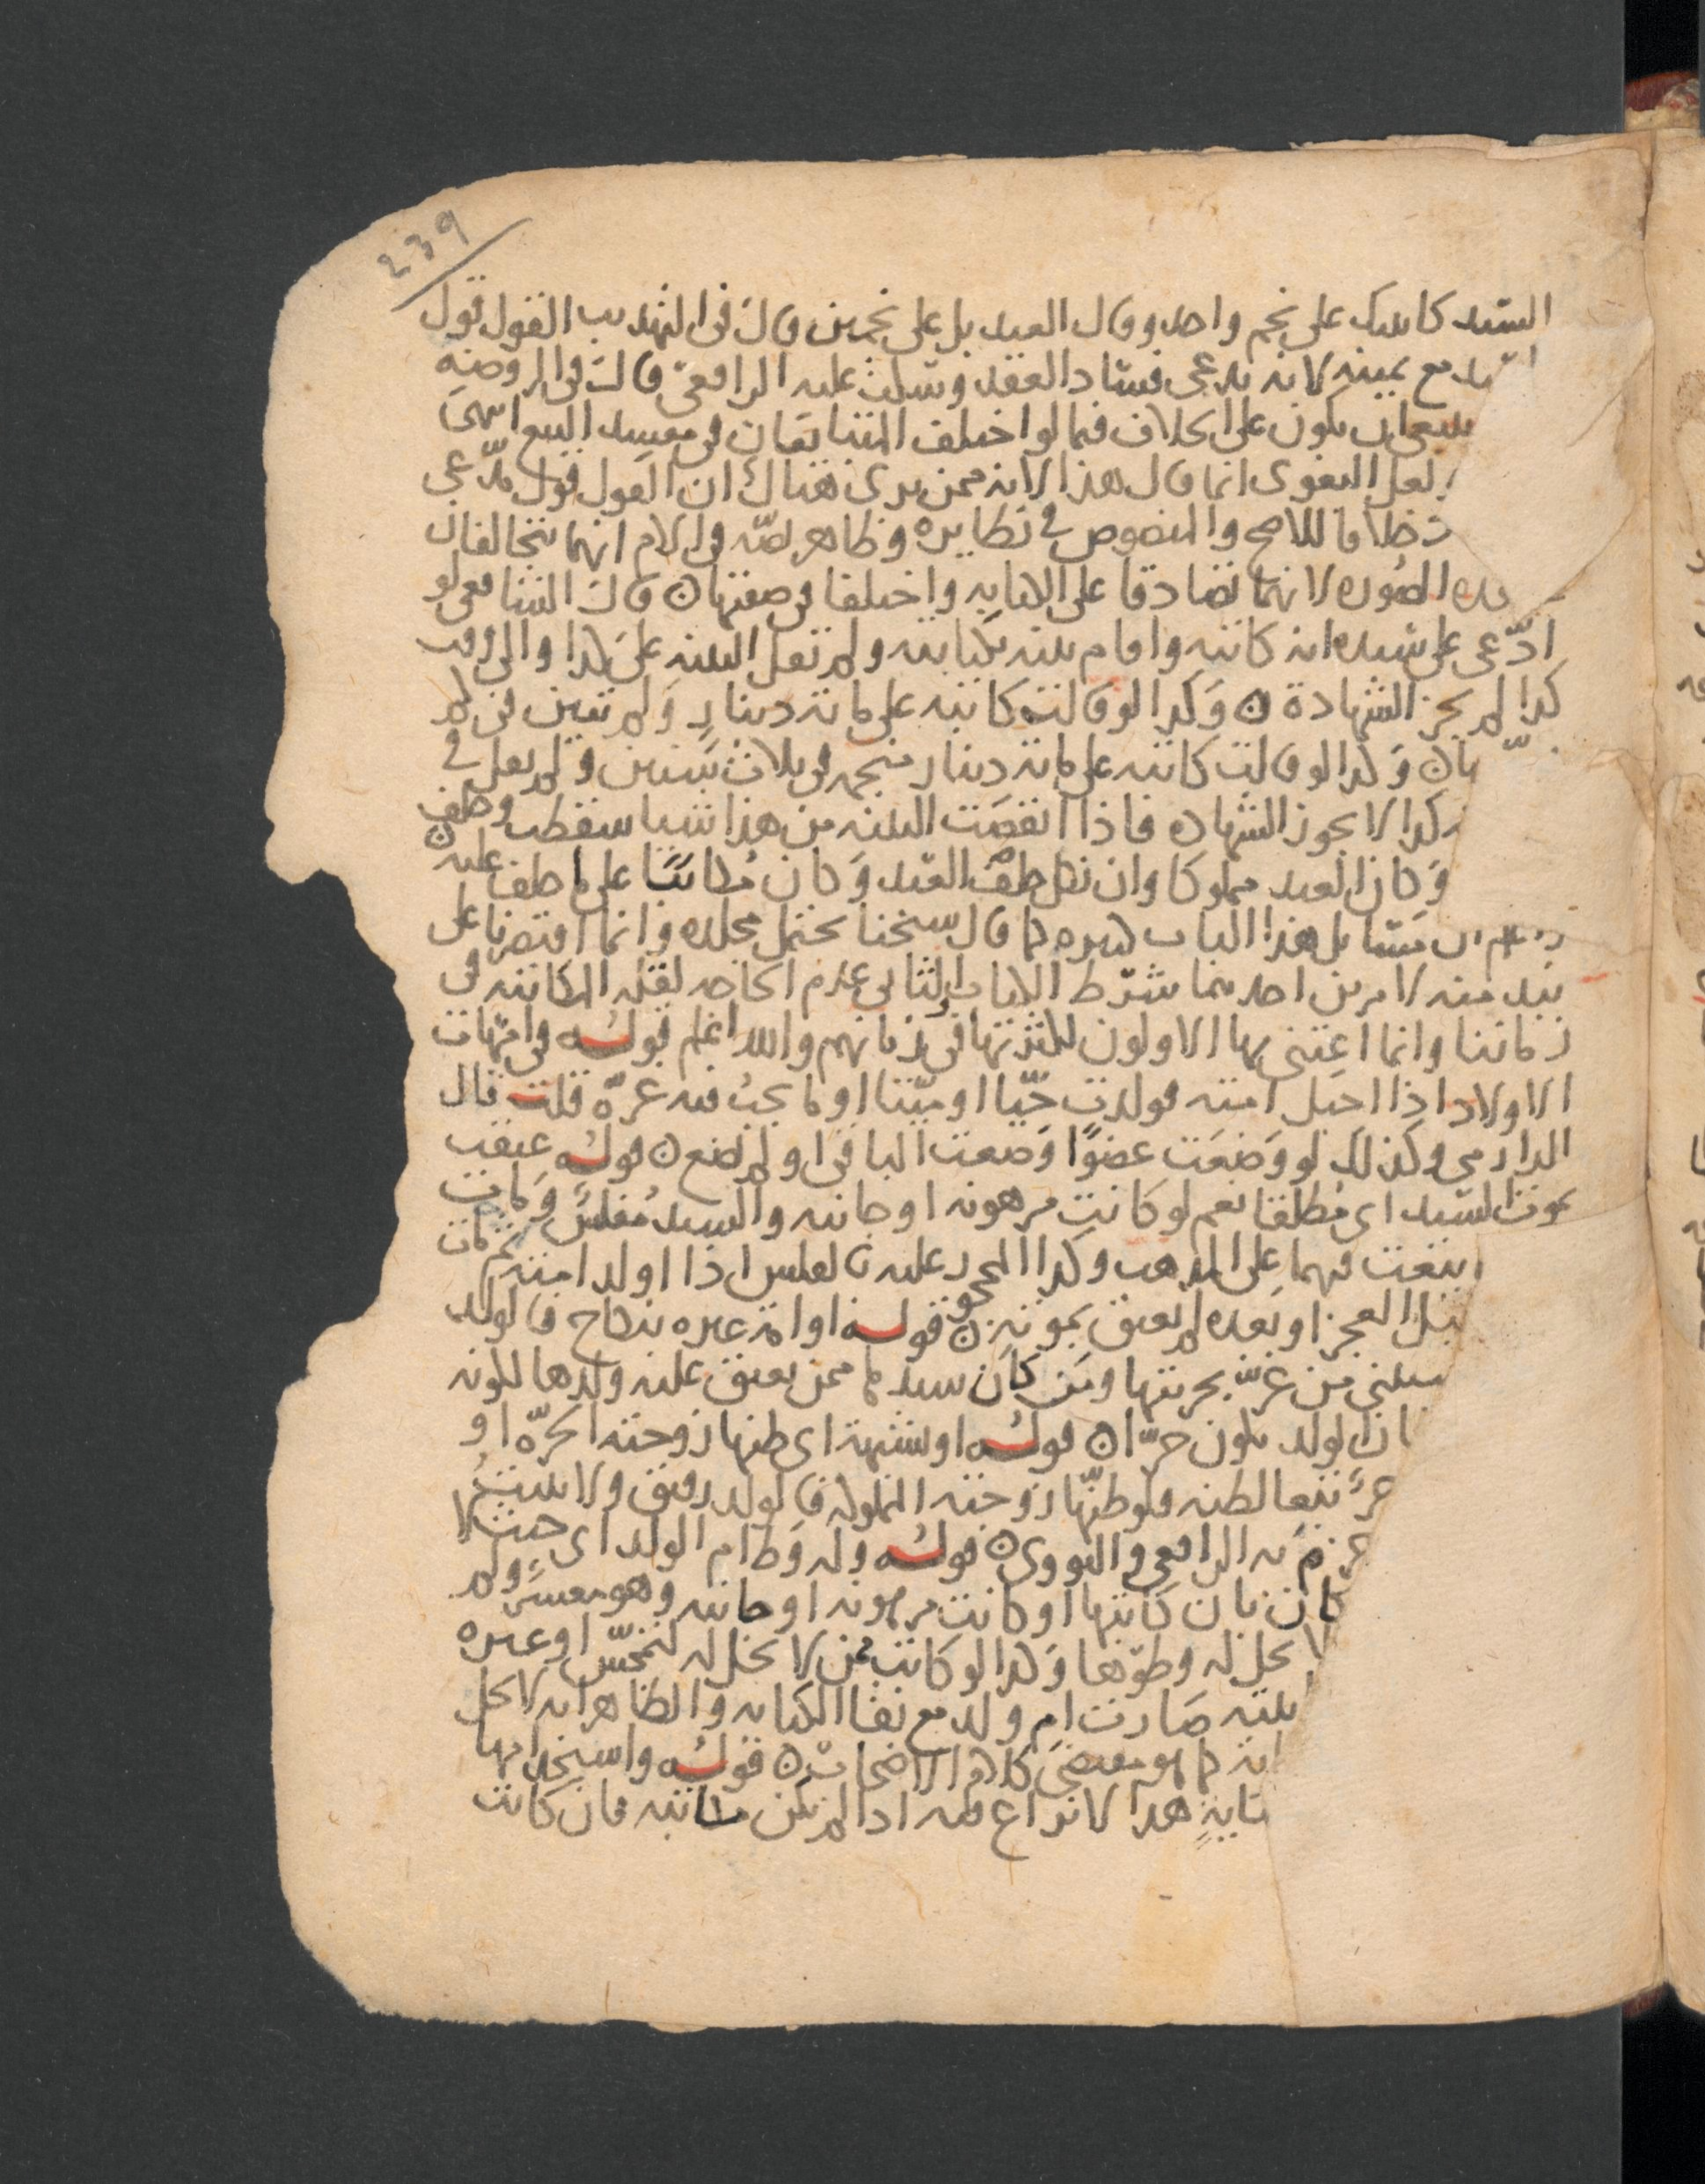 239
السيد كاتبتك على نجم واحد وقال العبد بل على نجمين قال في التهذيب القول قول
مع يمينه لانه يدعي فساد العقد وسكت عليه الرافعي قال في الروضة
ينبغي ان يكون على الخلاف فيما لو اختلف المتبايعان في مفسد البيع انتهى
لعل البغوي انما قال هذا لانه ممن يرى هناك ان القول قول مدعي
خلافا للاصح والنصوص في نظايره وظاهر نصه في الام انهما يتحالفان
الصوره لانهما تصادقا على الكتابه واختلفا في صفتها ن قال الشافعي لو
ادعى على سيده انه كاتبه واقام بينه بكتابته ولم تقل البينه على كذا والى وقت
كذا لم يجز الشهادة ن وكذا لو قالت كاتبه على مائة دينار ولم تبين في كم
وكذا لو قالت كاتبه على مائة دينار منجمه في ثلاث سنين ولم يقل في
كذا لا يجوز الشهاده فاذا انقصت البينه من هذا شيا سقطت وحلف
وكان العبد مملوكا وان نكل حلف العبد وكان مكاتبا على ما حلف عليه ن
مسايل هذا الباب كثيره كما قال شيخنا يحتمل مجلده وانما اقتصرنا على
نبذ منه لامرين احدهما شرط الكتاب الثاني عدم الحاجه لقله المكاتبه في
زماننا وانما اعتنى بها الاولون لكثرتها في زمانهم والله اعلم قوله في امهات
الاولاد اذا احبل امته فولدت حيا او ميتا او ما يجب فيه غره قلت قال
الدارمي وكذلك لو وضعت عضوا وضعت الباقي او لم تضع ن قوله عتقت
بموت السيد اي مطلقا نعم لو كانت مرهونه او جانيه والسيد مفلس ومات
بيعت فيهما على المذهب وكذا المحجور عليه بالفلس اذا اولد امته ثم مات
قبل الحجر او بعده لم تعتق بموته ن قوله او امة غيره بنكاح فالولد
من غر بحريتها ومن كان سيدها ممن يعتق عليه ولدها لكونه
الولد يكون حرا ن قوله او شبهة اي ظنها زوجته الحرة او
حر تبعا لظنه فلو ظنها زوجته المملوكه فالولد رقيق ولا يثبت
به الرافعي والنووي ن قوله وله وطء ام الولد اي حيث لا
كان بان كاتبها او كانت مرهونه او جانيه وهو معسر ولم
لا يحل له وطؤها وكذا لو كانت ممن لا تحل له لتمجس او غيره
صارت ام ولد مع بقا الكتابه والظاهر انه لا يحل
كما هو مقتضى كلام الاصحاب ن قوله واستخدامها
هذا لا نزاع فيه اذا لم تكن مكاتبه فان كانت